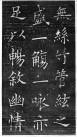 無絲竹管弦之
盛一觴一詠亦
足以暢叙幽情